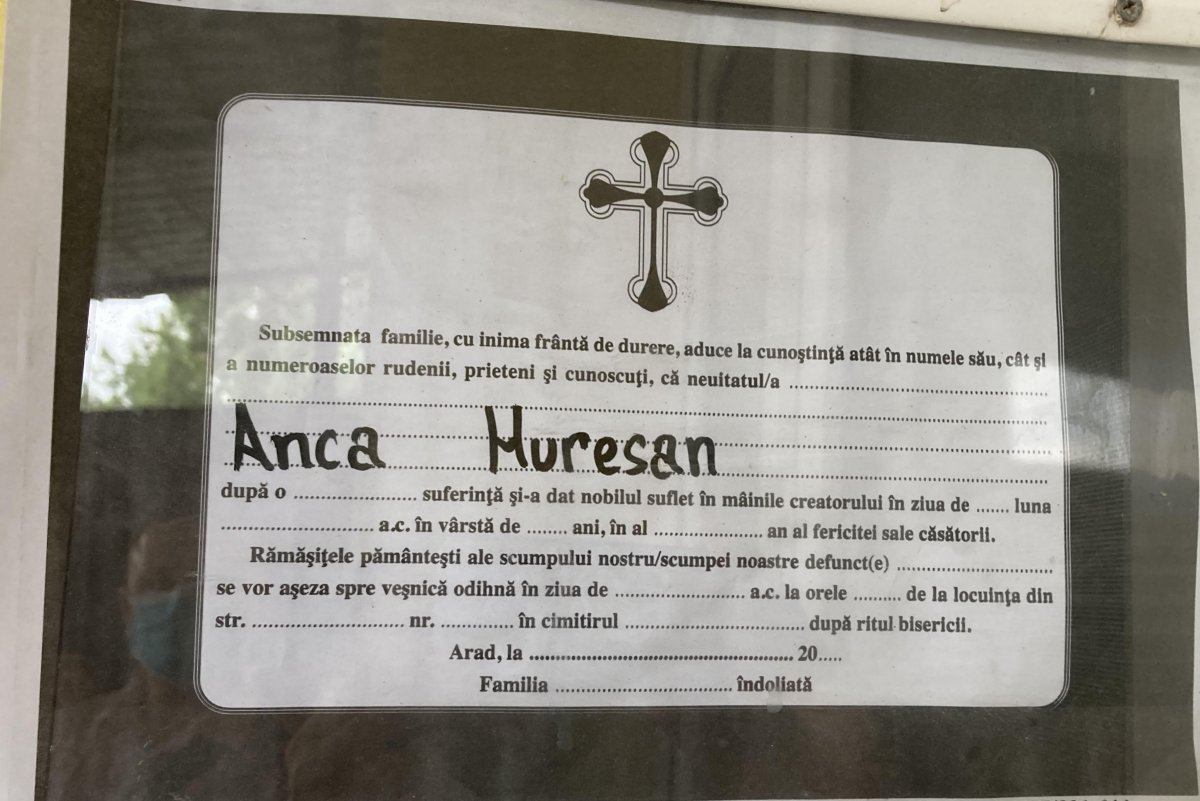 Subsemnata familie, cu inima frântă de durere, aduce la cunoştinţă atât în numele său, cât şi
a numeroaselor rudenii, prieteni şi cunoscuţi, că neuitatul/a ..............................................
Anca Muresan
după o ...................... suferinţă şi-a dat nobilul suflet în mâinile creatorului în ziua de ....... luna
........................... a.c. în vârstă de ....... ani, în al .................... an al fericitei sale căsătorii.
Rămăşiţele pământeşti ale scumpului nostru/scumpei noastre defunct(e) ............................
se vor aşeza spre veşnică odihnă în ziua de ....................... a.c. la orele ......... de la locuinţa din
str. ........................... nr. ............. în cimitirul ................................ după ritul bisericii.
Arad, la ............................................... 20.....
Familia ................................ îndoliată